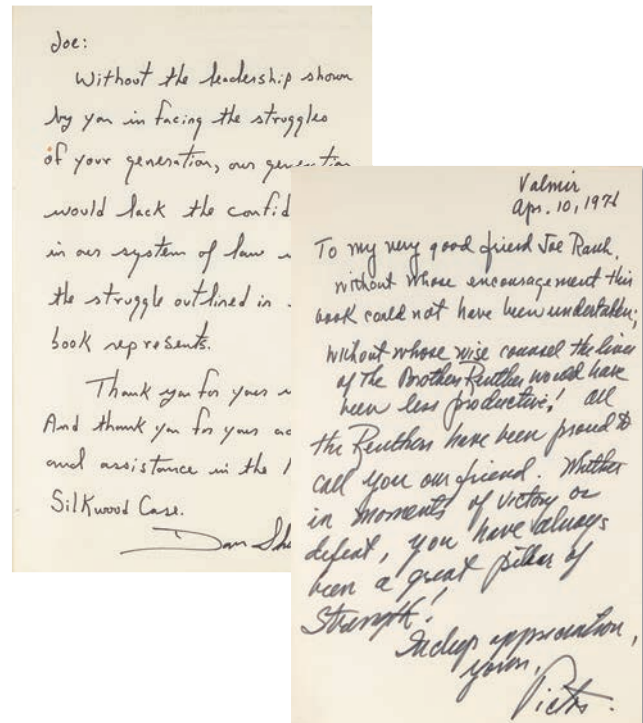 Joe:
Without the leadership shown
by you in facing the struggles
of your generation, our generation
would lack the confid
in our system of law
the struggle outlined in
book represents.
Thank you for your
And thank you for your
and assistance in the
Silkwood Case.
Dan She
Valmir
Apr. 10, 1976
To my very good friend Joe Rauh,
without whose encouragement this
book could not have been undertaken;
without whose wise counsel the lives
of The Brothers Reuther would have
been less productive! All
the Reuthers have been proud to
call you our friend. Whether
in moments of victory or
defeat, you have always
been a great pillar of
Strength!
In deep appreciation,
yours,
Victor.